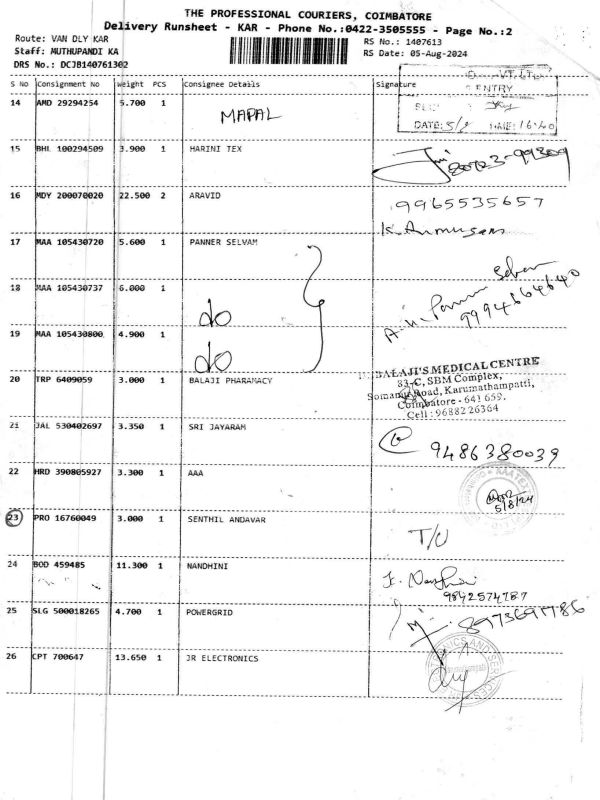 THE PROFESSIONAL COURIERS, COIMBATORE
Delivery Runsheet - KAR - Phone No.:0422-3505555 - Page No.:2
Route: VAN DLY KAR
RS No.: 1407613
Staff: MUTHUPANDI KA
RS Date: 05-Aug-2024
DRS No.: DCJB140761302
S No Consignment No Weight PCS Consignee Details Signature
ENTRY
DATE: 5/8 TIME: 16:40
14 AMD 29294254 5.700 1 MAPAL
15 BHL 100294509 3.900 1 HARINI TEX
16 MDY 200070020 22.500 2 ARAVID 9965535657
17 MAA 105430720 5.600 1 PANNER SELVAM
18 MAA 105430737 6.000 1 do 9994664640
19 MAA 105430800 4.900 1 do
20 TRP 6409059 3.000 1 BALAJI PHARAMACY
BALAJI'S MEDICAL CENTRE
83-C, SBM Complex,
Somanur Road, Karumathampatti,
Coimbatore - 641 659.
Cell : 96882 26364
21 JAL 530402697 3.350 1 SRI JAYARAM 9486380039
22 HRD 390805927 3.300 1 AAA
5/8/24
23 PRO 16760049 3.000 1 SENTHIL ANDAVAR T/U
24 BOD 459485 11.300 1 NANDHINI
9842574787
25 SLG 500018265 4.700 1 POWERGRID
26 CPT 700647 13.650 1 JR ELECTRONICS